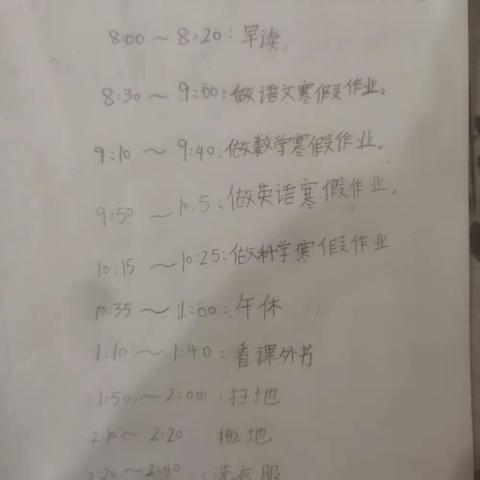 8:00～8:20：早读。
8:30～9:00：做语文寒假作业。
9:10～9:40：做数学寒假作业。
9:50～10:5：做英语寒假作业。
10:15～10:25：做科学寒假作业
10:35～11:00：午休
1:10～1:40：看课外书
1:50～2:00：扫地
2:10～2:20 拖地
2:20～2:40：洗衣服